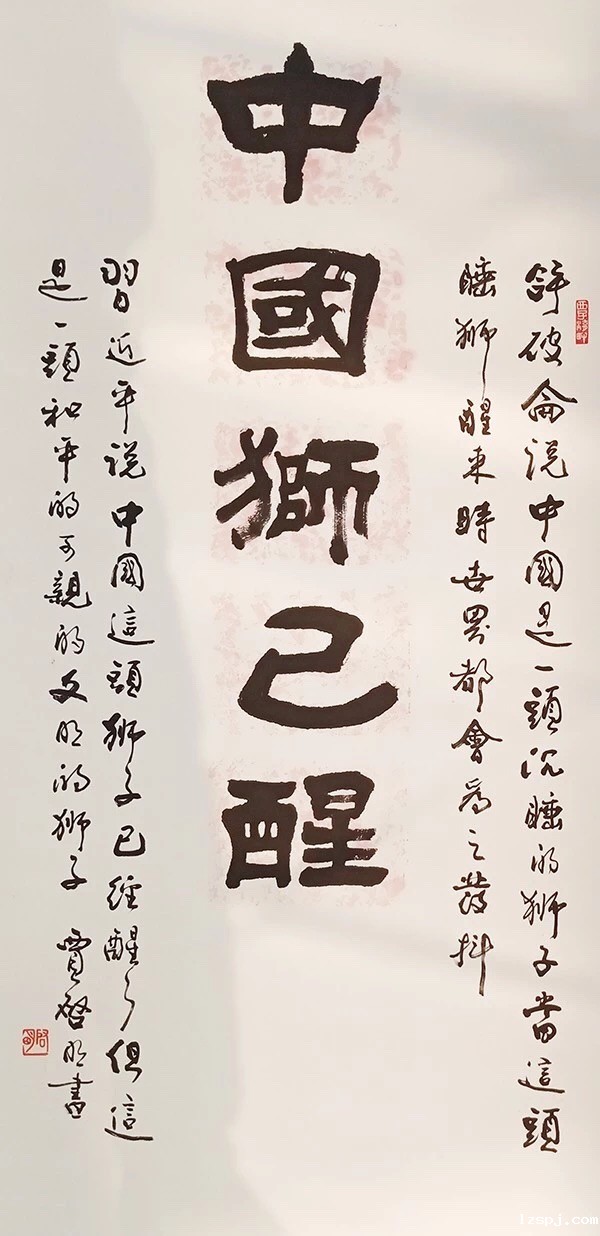 拿破侖说中國是一頭沉睡的狮子當這頭
睡狮醒来時世界都會爲之發抖
中國獅已醒
習近平说中國這頭狮子已經醒了但這
是一頭和平的可親的文明的狮子 賈啓明書
lzspj.com